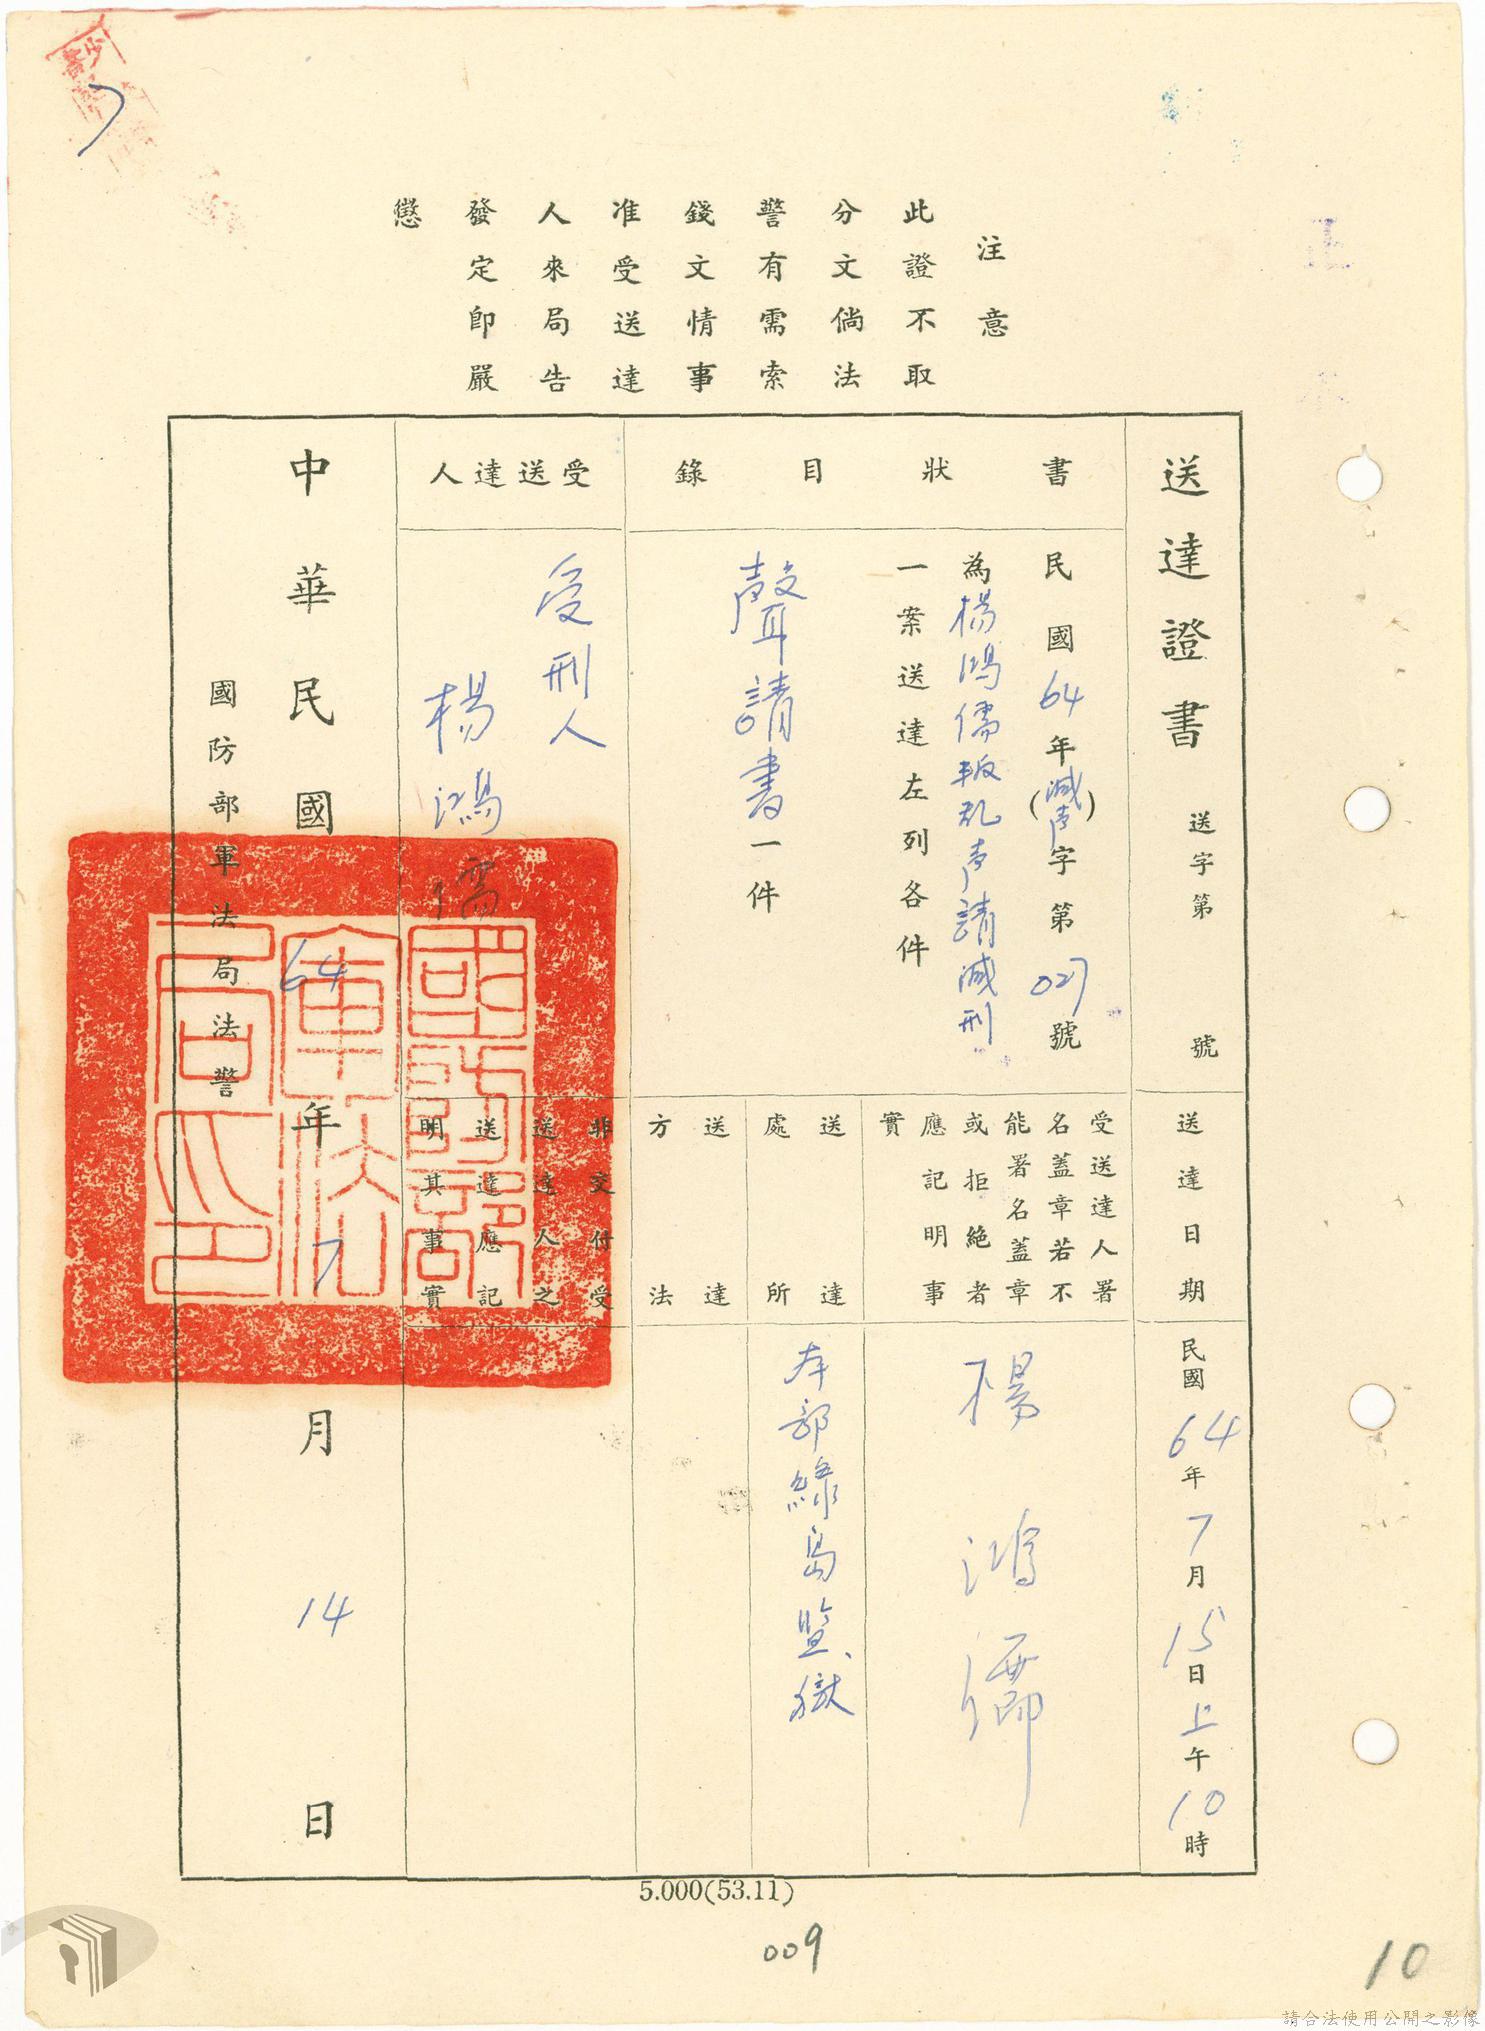 注意
此證不取
分文倘法
警有需索
錢文情事
准受送達
人來局告
發定即嚴
懲
送達證書
送字第 號
書狀目錄
民國64年(減聲)字第027號
為楊鴻儒叛乱声請減刑
一案送達左列各件
聲請書一件
受送達人
受刑人
楊鴻儒
送達日期
民國64年7月15日上午10時
受送達人署
名蓋章若不
能署名蓋章
或拒絕者
應記明事
實
楊鴻儒
送達
處所
本部綠島監獄
送達
方法
非交付受
送達人之
送達應記
明其事實
中華民國64年7月14日
國防部軍法局法警
國防部
軍法
局印
5.000(53.11)
009
10
請合法使用公開之影像